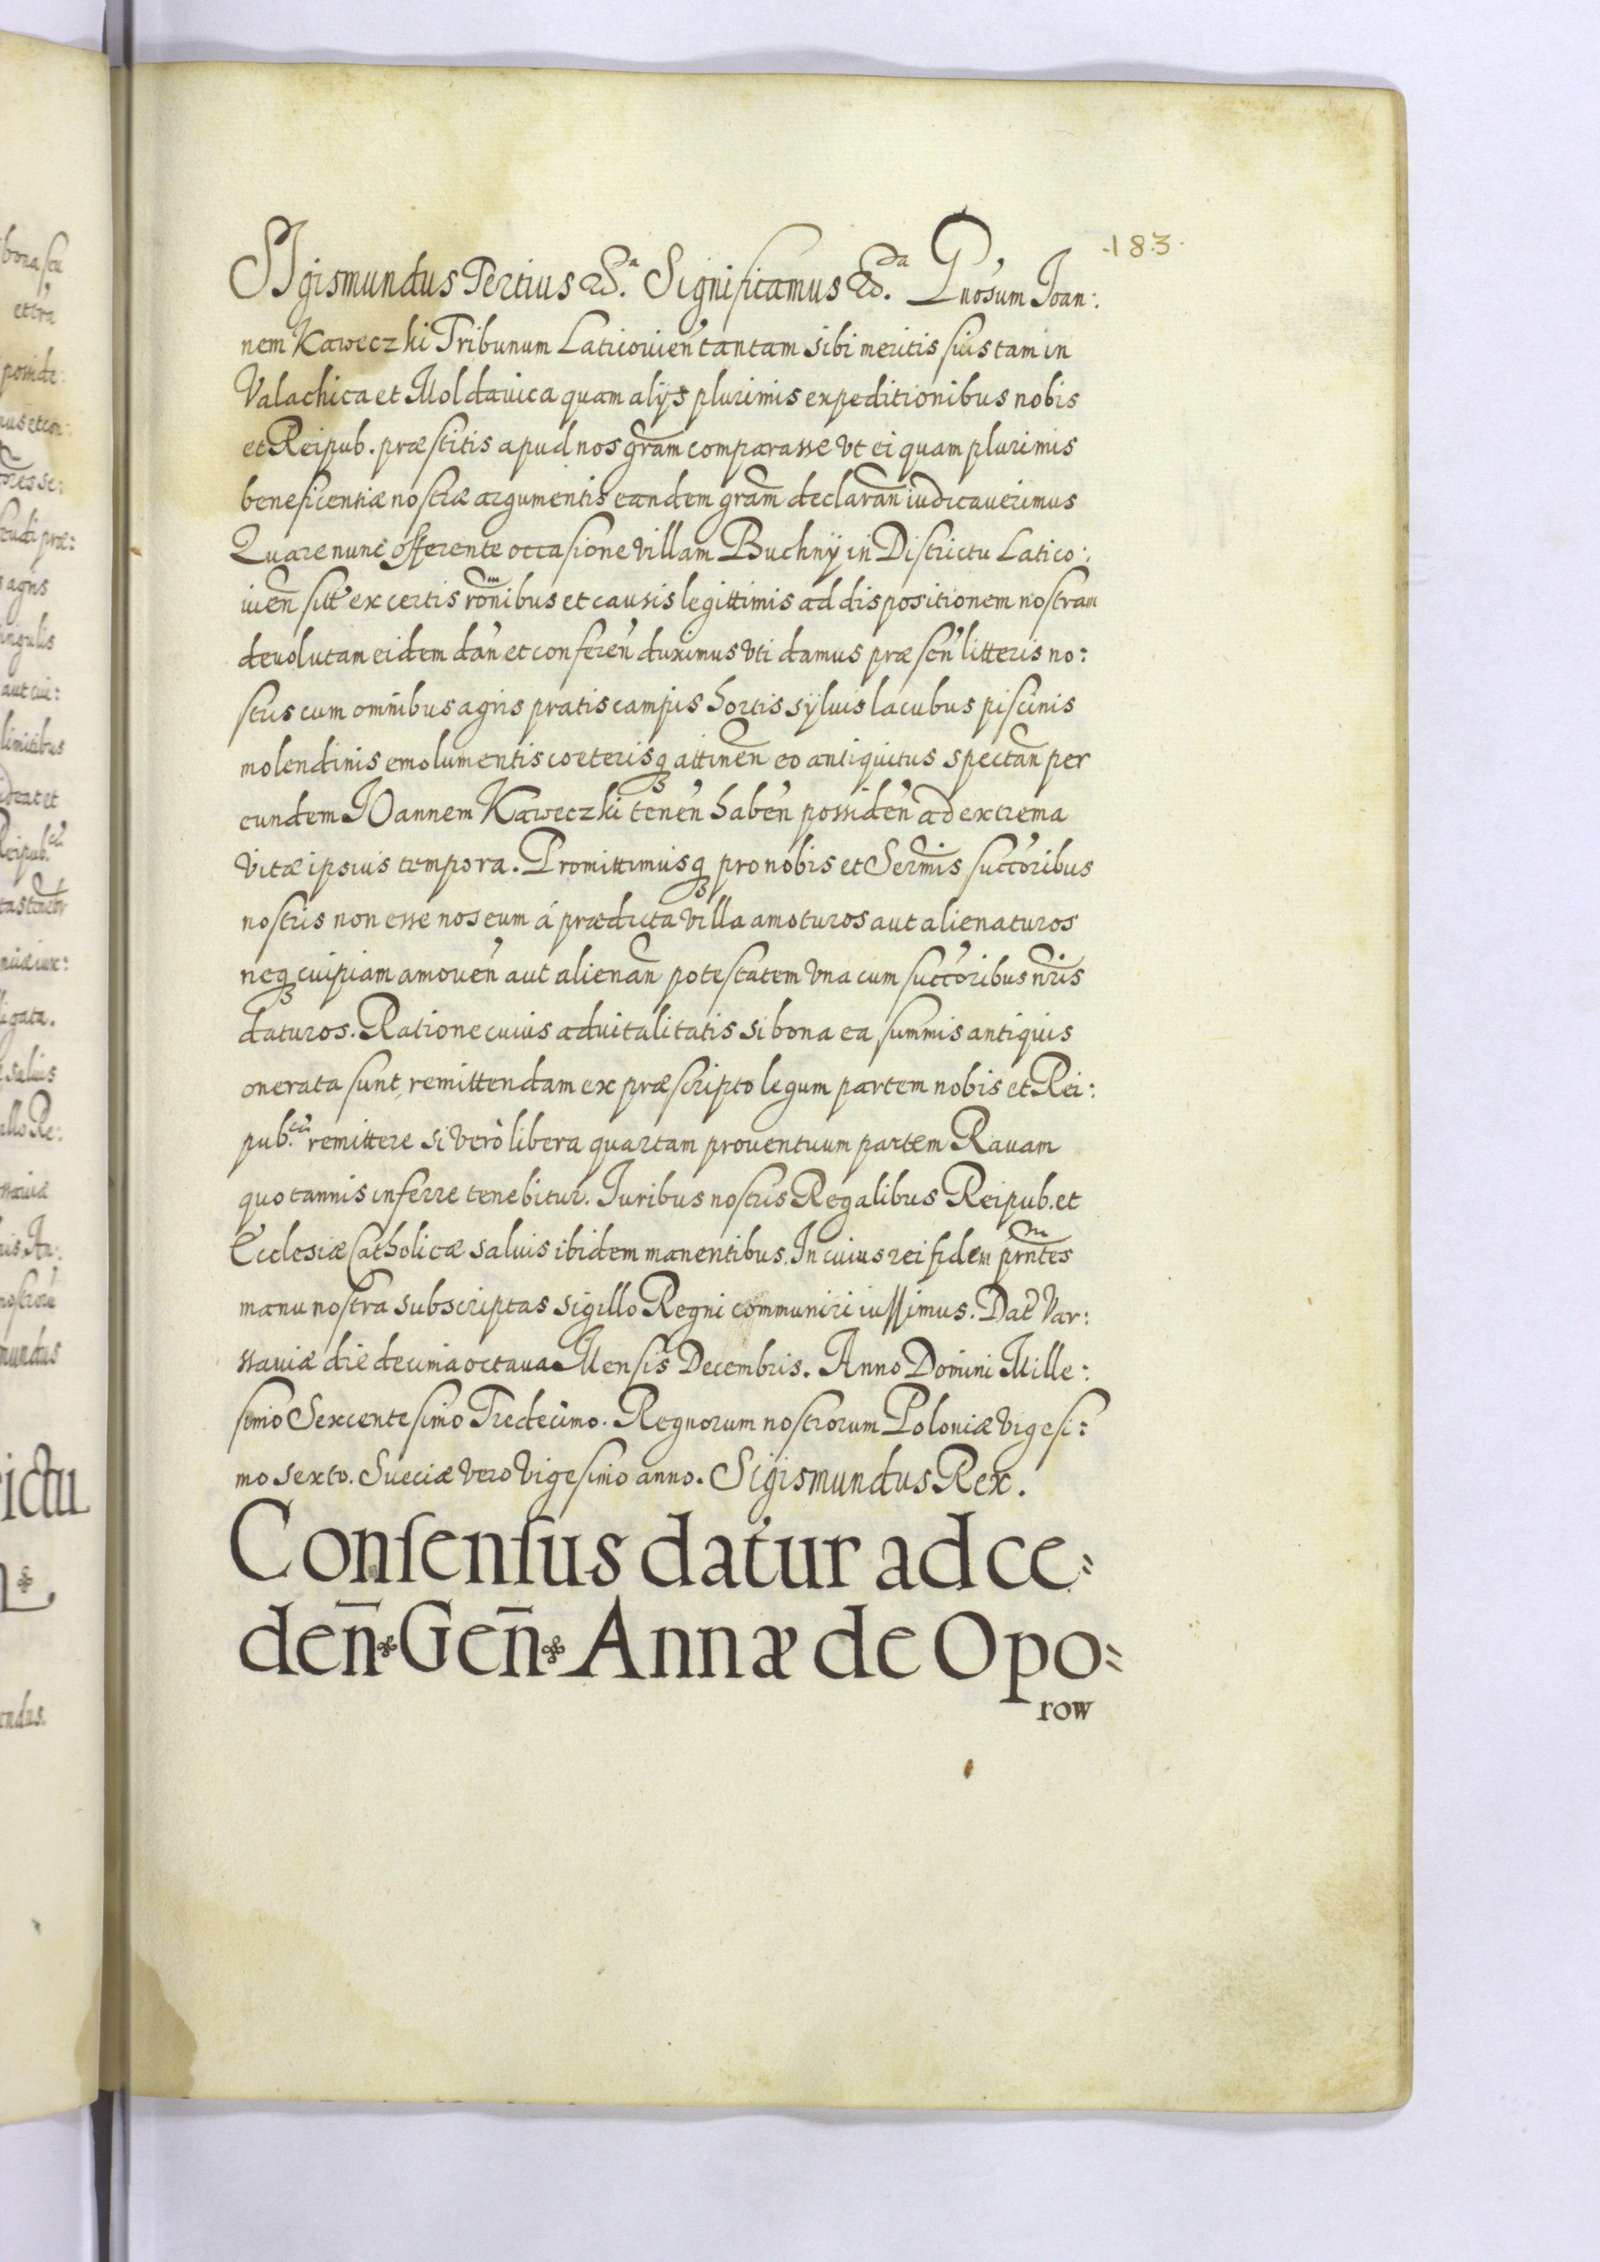 ·183·
SIgismundus Tertius &c.ª Significamus &c.da Gnosum Ioan:
nem Kaweczki Tribunum Laticouien̄ tantam sibi meritis suis tam in
Valachica et Moldauica quam alijs plurimis expeditionibus nobis
et Reipub. præstitis apud nos gram̄ comparasse vt ei quam plurimis
beneficentiæ nostræ argumentis eandem gram̄ declaran̄ iudicauerimus
Quare nunc offerente occasione villam Buchnÿ in Districtu Latico:
uien̄ sitt̄ ex certis rōnibus et causis legittimis ad dispositionem nostram
deuolutam eidem dan̄ et conferen̄ duximus vti damus præsen̄ litteris no:
stris cum omnibus agris pratis campis hortis sÿluis lacubus piscinis
molendinis emolumentis cæterisq₃ attinen̄ eo antiquitus spectan̄ per
eundem IOannem Kaweczki tenen̄ haben̄ possiden̄ ad extrema
vitæ ipsius tempora. Promittimusq₃ pro nobis et Serm̄is succ̄oribus
nostris non esse nos eum á prædicta villa amoturos aut alienaturos
neq₃ cuipiam amouen̄ aut alienan̄ potestatem vna cum succ̄oribus nr̄is
daturos. Ratione cuius aduitalitatis si bona ea summis antiquis
onerata sunt, remittendam ex præscripto legum partem nobis et Rei:
pub.cæ remittere si verò libera quartam prouentuum partem Rauam
quotannis inferre tenebitur. Iuribus nostris Regalibus Reipub. et
Ecclesiæ Catholicæ saluis ibidem manentibus. In cuius rei fidem prn̄tes
manu nostra subscriptas sigillo Regni communiri iussimus. Dat̄ Var:
sauiæ die decima octaua Mensis Decembris. Anno Domini Mille:
simo Sexcentesimo Tredecimo. Regnorum nostrorum Poloniæ vigesi:
mo sexto. Sueciæ vero vigesimo anno. Sigismundus Rex.
Consensus datur ad ce=
den̄ Gen̄ Annæ de Opo=
row